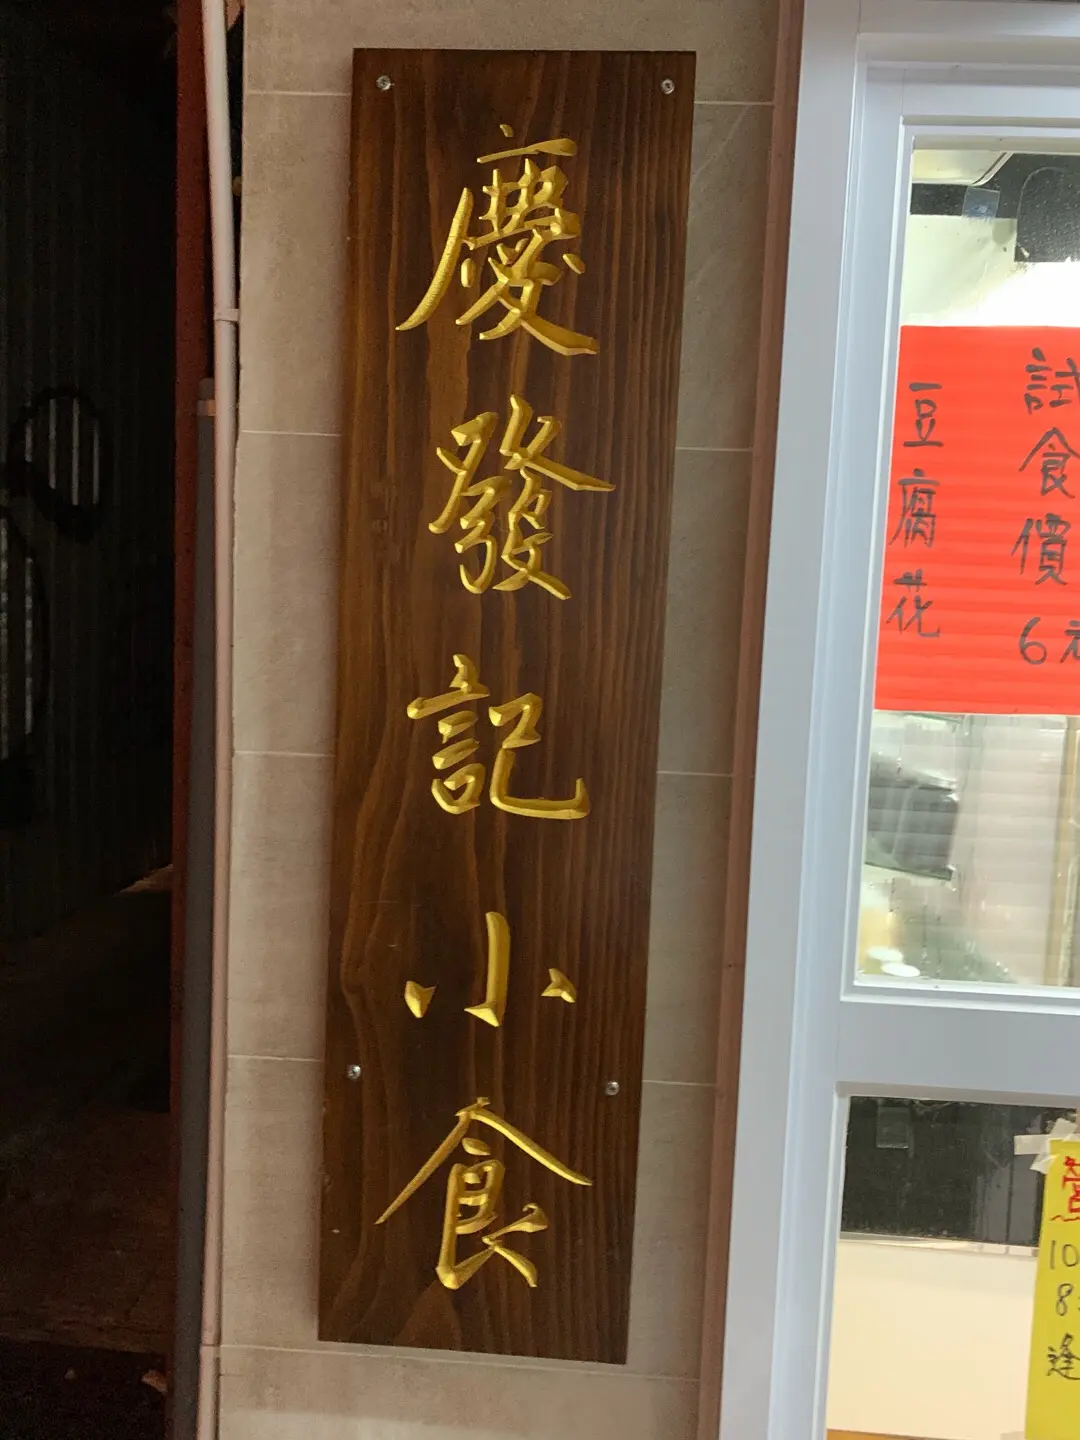 慶發記小食
試食價6元
豆腐花
營
10
8
逢